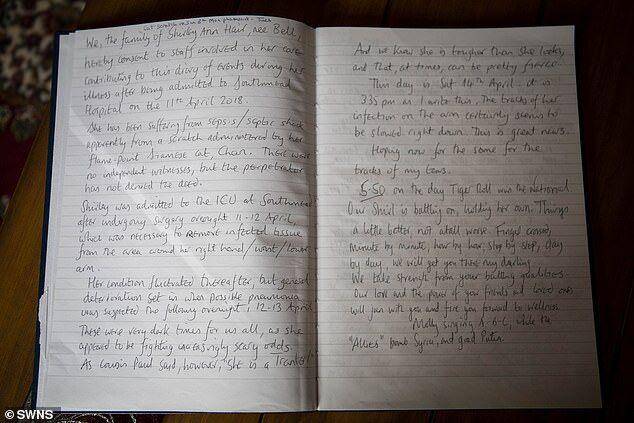 Cat scratch
We, the family of Shirley Ann Hair, nee Bell,
hereby consent to staff involved in her care
contributing to this diary of events during her
illness after being admitted to Southmead
Hospital on the 11th April 2018.
She has been suffering from sepsis/septic shock
apparently from a scratch administered by her
flame-point Siamese cat, Chan. There were
no independent witnesses, but the perpetrator
has not denied the deed.
Shirley was admitted to the ICU at Southmead
after undergoing surgery overnight 11-12 April,
which was necessary to remove infected tissue
from the area around her right hand/wrist/lower
arm.
Her condition fluctuated thereafter, but general
deterioration set in when possible pneumonia
was suspected the following overnight, 12-13 April
These were very dark times for us all, as she
appeared to be fighting increasingly scary odds.
As cousin Paul said, however, "She is a
And we know she is tougher than she looks,
and that, at times, can be pretty fierce.
This day is Sat 14th April. it is
3.35 pm as I write this. The tracks of her
infection on the arm certainly seems to
be slowed right down. This is great news.
Hoping now for the same for the
tracks of my tears.
5.50 on the day Tiger Roll won the National
Our Shirl is battling on, holding her own. Things
a little better, not at all worse. Fingers crossed,
minute by minute, hour by hour, step by step, day
by day, we will get you there my darling.
We take strength from your battling qualities.
Our love and the power of your friends and loved ones
will join with you and fire you forward to wellness.
Molly singing A-O-C, while the
"Allies" bomb Syria, and goad Putin.
© SWNS